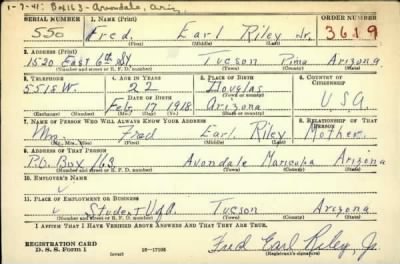 1-7-41: Box 163 - Avondale, Ariz.
SERIAL NUMBER 1. NAME (Print) ORDER NUMBER
550 Fred, Earl Riley Jr. 3619
(First) (Middle) (Last)
2. ADDRESS (Print)
1520 East 6th St Tucson Pima Arizona
(Number and street or R. F. D. number) (Town) (County) (State)
3. TELEPHONE 4. AGE IN YEARS 5. PLACE OF BIRTH 6. COUNTRY OF CITIZENSHIP
5518W. 22 Douglas
DATE OF BIRTH (Town or county)
Feb. 17 1918 Arizona U S A
(Exchange) (Number) (Mo.) (Day) (Yr.) (State or country)
7. NAME OF PERSON WHO WILL ALWAYS KNOW YOUR ADDRESS 8. RELATIONSHIP OF THAT PERSON
Mrs. Fred Earl. Riley Mother.
(Mr., Mrs., Miss) (First) (Middle) (Last)
9. ADDRESS OF THAT PERSON
P.O. Box 163 Avondale Maricopa Arizona
(Number and street or R. F. D. number) (Town) (County) (State)
10. EMPLOYER'S NAME
11. PLACE OF EMPLOYMENT OR BUSINESS
Student UofA Tucson Arizona
(Number and street or R. F. D. number) (Town) (County) (State)
I AFFIRM THAT I HAVE VERIFIED ABOVE ANSWERS AND THAT THEY ARE TRUE.
REGISTRATION CARD
D. S. S. Form 1 (over) Fred Earl Riley, Jr.
(Registrant's signature)